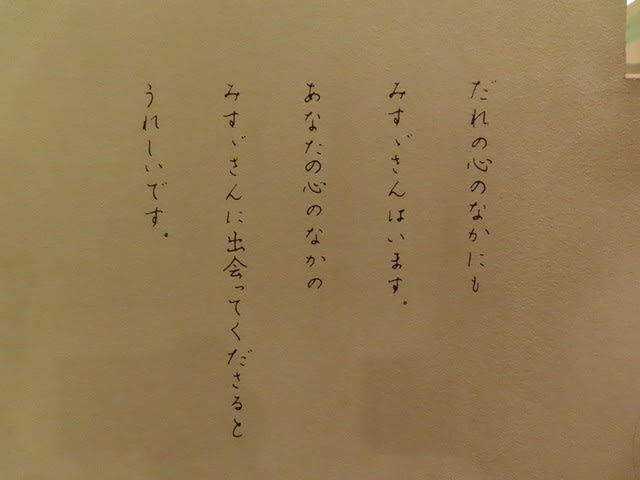 だれの心のなかにも
みすゞさんはいます。
あなたの心のなかの
みすゞさんに出会ってくださると
うれしいです。